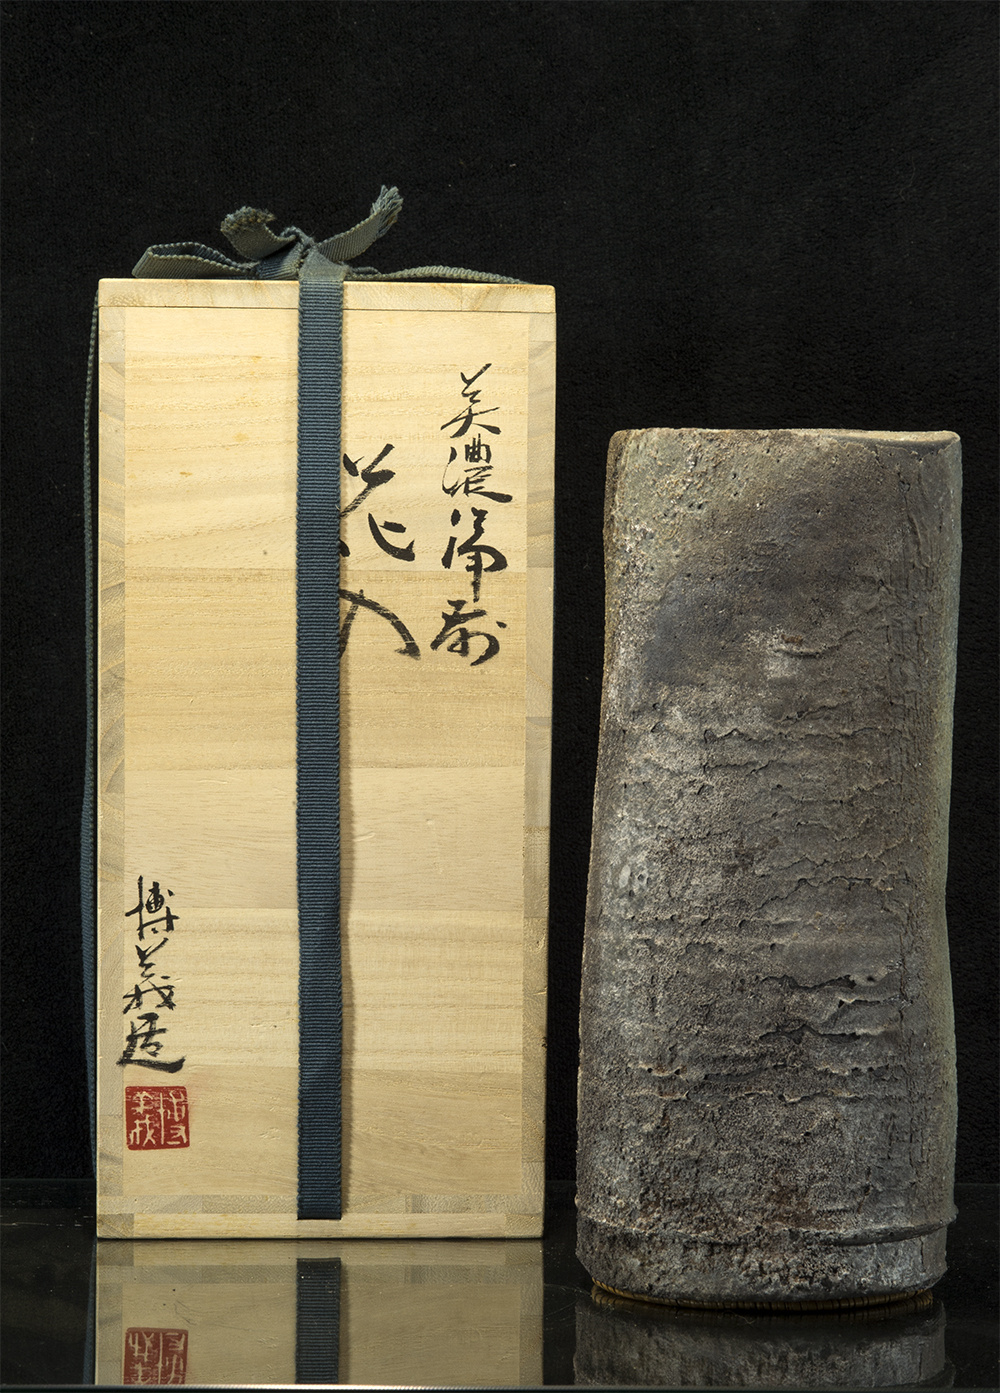 美濃備前
花入
博義造
博義